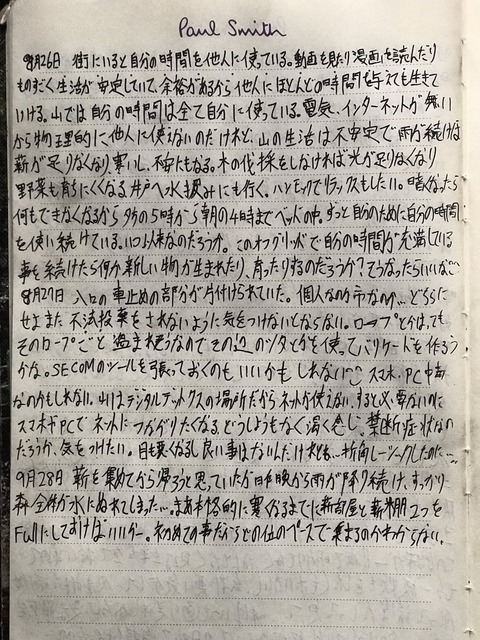 Paul Smith
9月26日 街にいると自分の時間を他人に使っている。動画を見たり漫画を読んだり
ものすごく生活が安定していて、余裕があるから他人にほとんどの時間を与えても生きて
いける。山では自分の時間は全て自分に使っている。電気、インターネットが無い
から物理的に他人に使えないのだけれど、山の生活は不安定で雨が続けば
薪が足りなくなり、寒いし、不安にもなる。木の伐採をしなければ光が足りなくなり
野菜も育ちにくくなる。井戸へ水汲みにも行く。ハンモックでリラックスもしたい。暗くなったら
何もできなくなるから夕方の5時から朝の4時までベッドの中。ずっと自分のために自分の時間
を使い続けている。いつ以来なのだろうか。このオフグリッドで自分の時間が充満している
事を続けたら何か新しい物が生まれたり、育ったりするのだろうか?そうなったらいいな
9月27日 入口の車止めの部分が片付けられていた。個人なのか市なのか… どちらに
せよまた不法投棄をされないように気をつけないとならない。ロープとかはっても
そのロープごと盗まれそうなのでその辺のツタとかを使ってバリケードを作ろう
かな。SECOMのシールを張っておくのもいいかもしれない スマホ、PC中毒
なのかもしれない。山はデジタルデトックスの場所だからネットが使えない、すると必要ないのに
スマホやPCでネットにつながりたくなる、どうしようもなく渇く感じ、禁断症状なの
だろうか、気をつけたい。目も悪くなるし良い事はないんだけれども、折角レーシックしたのに…
9月28日 薪を集めてから帰ろうと思っていたが昨晩から雨が降り続け、すっかり
森全体が水にぬれてしまった… まあ本格的に寒くなるまでに薪小屋と薪棚2つを
Fullにしておけばいいかー。初めての事だからどの位のペースで集まるのかわからない。